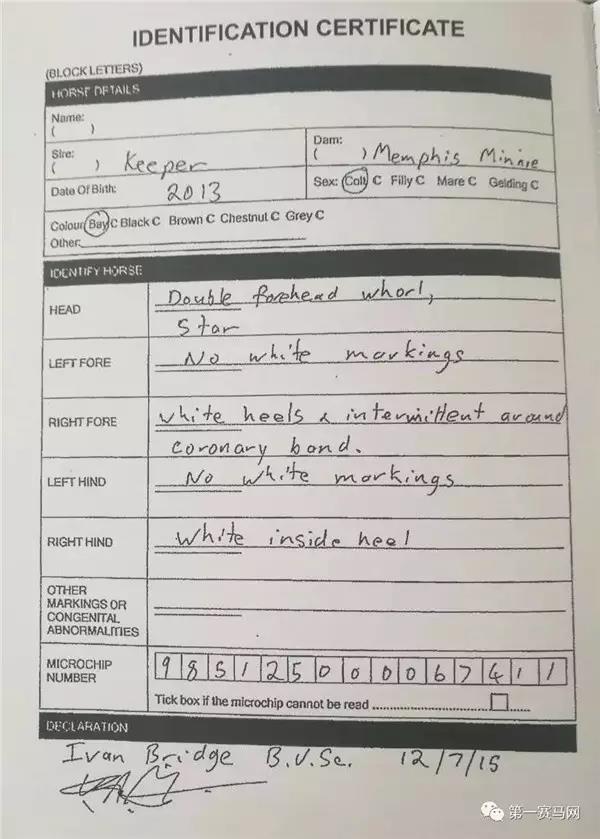 IDENTIFICATION CERTIFICATE
(BLOCK LETTERS)
HORSE DETAILS
Name:
( )
Sire: Dam:
( ) Keeper ( ) Memphis Minnie
Date Of Birth: 2013 Sex: Colt C Filly C Mare C Gelding C
Colour Bay C Black C Brown C Chestnut C Grey C
Other:
IDENTIFY HORSE
HEAD Double forehead whorl,
Star
LEFT FORE No white markings
RIGHT FORE white heels & intermittent around
coronary band.
LEFT HIND No white markings
RIGHT HIND White inside heel
OTHER
MARKINGS OR
CONGENITAL
ABNORMALITIES
MICROCHIP
NUMBER 985125000067411
Tick box if the microchip cannot be read
DECLARATION
Ivan Bridge B.V.Sc. 12/7/15
第一赛马网